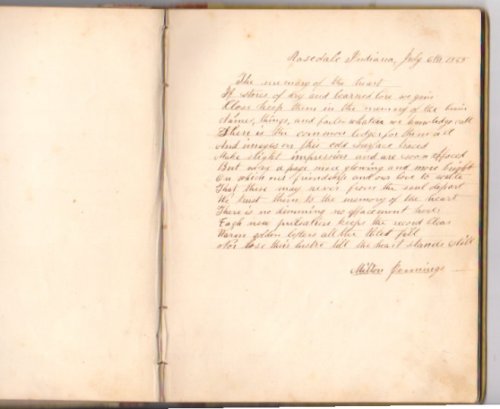 Rosedale Indiana, July 6th,
The memory of the heart
If stores of dry and learned lore we gain
Close keep them in the memory of the brain
Names, things, and facts whatever we knowledge call
There is the common ledger for them all
And images on this cold surface traced
Make slight impression and are soon effaced
But we've a page more glowing and more bright
On which our friendship and our love to write
That these may never from the soul depart
We trust them to the memory of the heart
There is no dimming no effacement here
Each new pulsation keeps the record clear
Warm golden letters all the tablet fill
Nor lose their lustre till the heart stands still
Milton Jennings